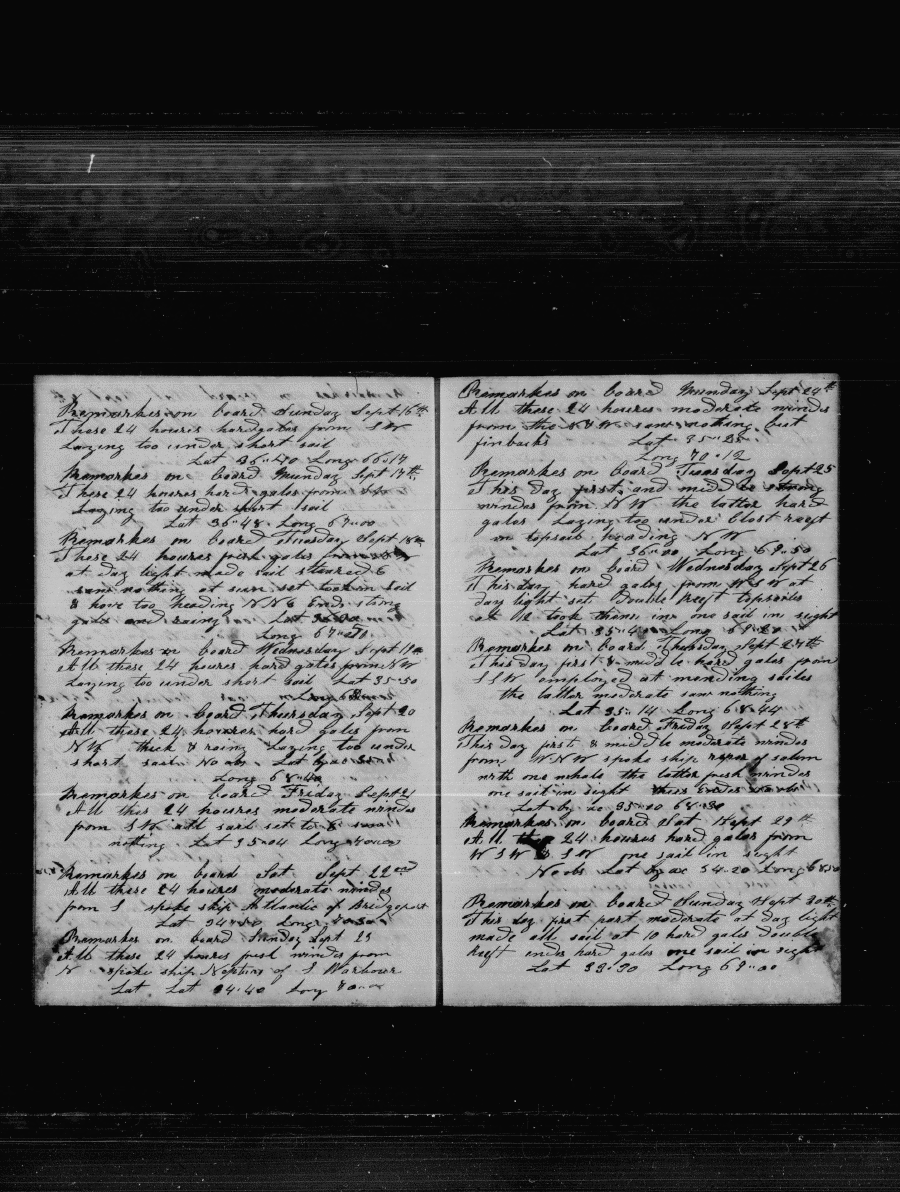 Remarkes on board Sunday Sept 16th
These 24 houres hard gales from S W
Laying too under short sail
Lat 36-40 Long 66-17
Remarkes on board Munday Sept 17th
These 24 houres hard gales from
Laying too under short sail
Lat 36-48 Long 67-00
Remarkes on board Tuesday Sept 18th
These 24 houres fresh gales from
at day light made sail steared E
saw nothing at sun set took in sail
& hove too heading N N E Ends strong
gales and rainy Lat
Long 67-
Remarkes on board Wednesday Sept 19
All these 24 houres hard gales from N W
Laying too under short sail Lat 35-50
Long 68
Remarkes on board Thursday Sept 20
All these 24 houres hard gales from
N W thick & rainy Laying too under
short sail No obs Lat by ac
Long 68-40
Remarkes on board Friday Sept 21
All this 24 houres moderate windes
from S W all sail set to E saw
nothing Lat 35-04 Long
Remarkes on board Sat Sept 22nd
All these 24 houres moderate windes
from S spoke ship Atlantic of Bridgeport
Lat 34 Long
Remarkes on board Sunday Sept 23
All these 24 houres fresh windes from
N spoke ship Neptine of S Warbour
Lat Lat 34-40 Long 70-00
Remarkes on board Munday Sept 24th
All these 24 houres moderate windes
from the N & W saw nothing but
finbacks Lat 35-25
Long 70-12
Remarkes on board Tuesday Sept 25
This day first and middle strong
windes from N W the latter hard
gales Laying too under Close reeft
on topsail heading N W
Lat 36-00 Long 69-50
Remarkes on board Wednesday Sept 26
This day hard gales from W S W at
day light set Double reeft topsailes
at 12 took them in one sail in sight
Lat 35-4 Long 69-20
Remarkes on board Thursday Sept 27th
This day first & middle hard gales from
S S W employed at mending sailes
the latter moderate saw nothing
Lat 35-14 Long 68-44
Remarkes on board Friday Sept 28th
This day first & middle moderate windes
from W N W spoke ship of salem
with one whale the latter fresh windes
one sail in sight thus Endes
Lat by ac 35-00 68-30
Remarkes on board Sat Sept 29th
All 24 houres hard gales from
W S W & S W one sail in sight
No obs Lat by ac 34-20 Long 68-50
Remarkes on board Sunday Sept 30th
This day first part moderate at day light
made all sail at 10 hard gales double
reeft endes hard gales one sail in sight
Lat 33-30 Long 69-00